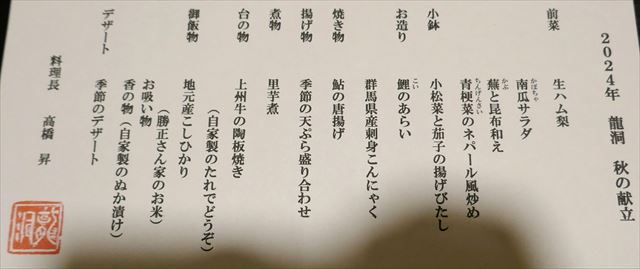 2024年 龍洞 秋の献立
前菜 生ハム梨
南瓜サラダ
かぼちゃ
蕪と昆布和え
かぶ
青梗菜のネパール風炒め
ちんげんさい
小鉢 小松菜と茄子の揚げびたし
お造り 鯉のあらい
こい
群馬県産刺身こんにゃく
焼き物 鮎の唐揚げ
揚げ物 季節の天ぷら盛り合わせ
煮物 里芋煮
台の物 上州牛の陶板焼き
(自家製のたれでどうぞ)
御飯物 地元産こしひかり
(勝正さん家のお米)
お吸い物
香の物(自家製のぬか漬け)
デザート 季節のデザート
料理長 高橋 昇
龍洞